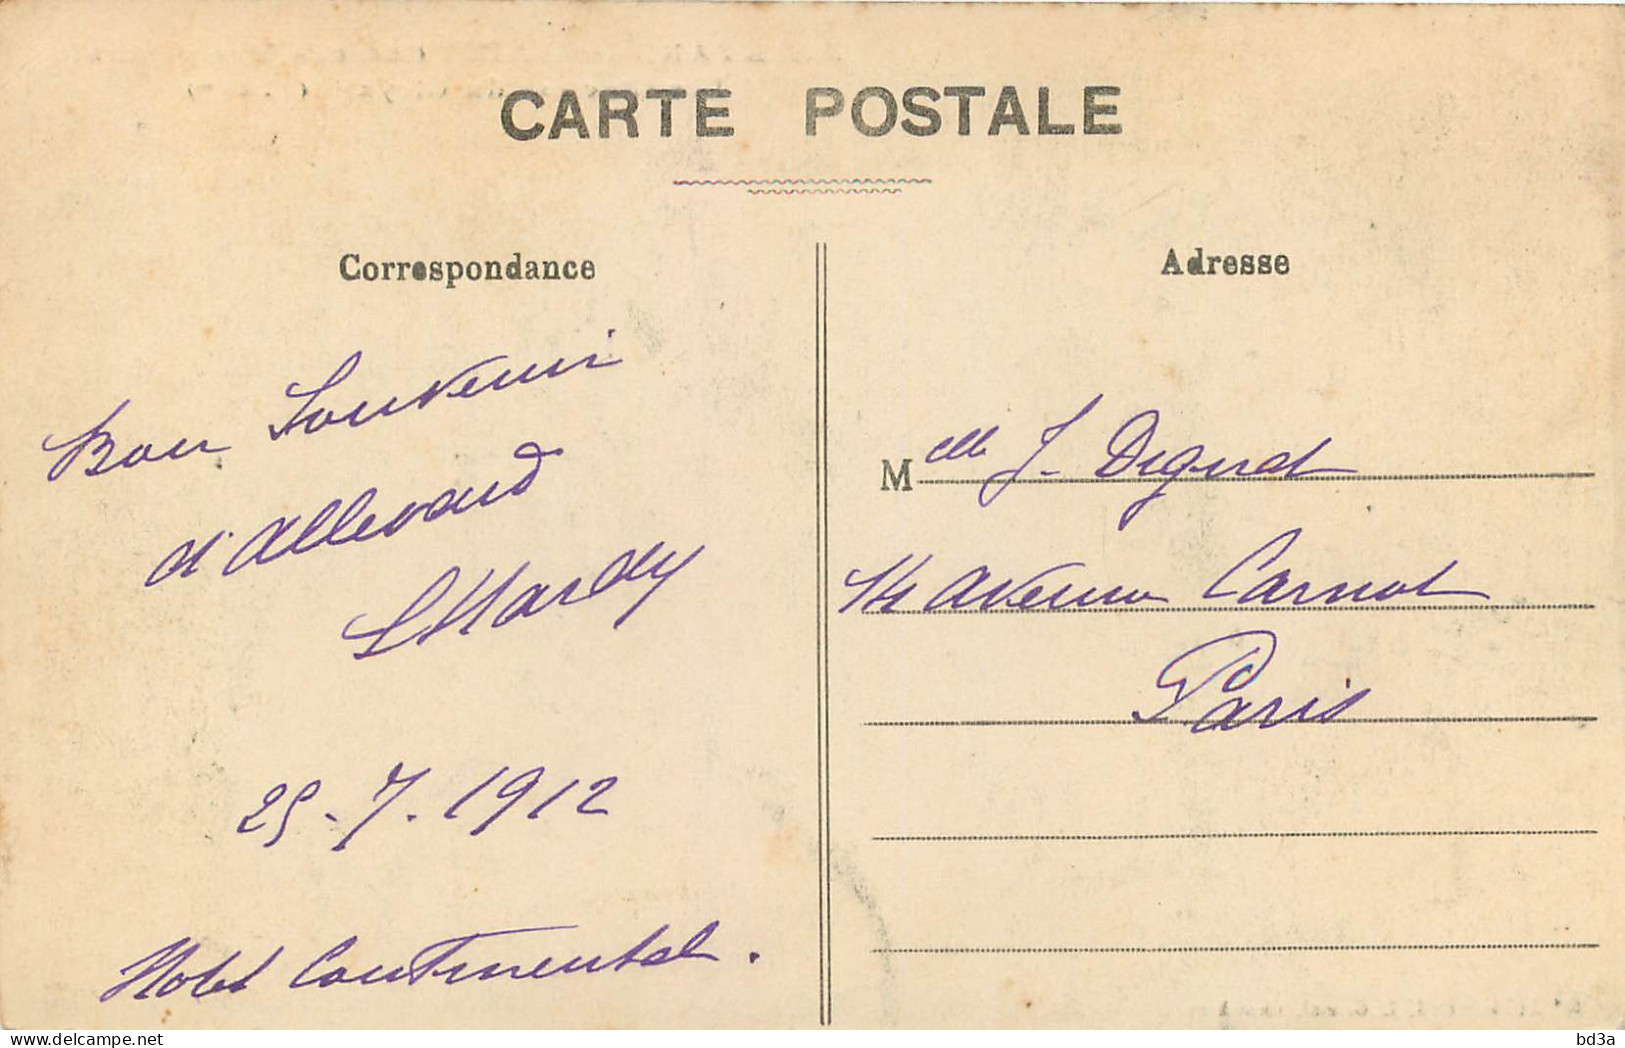 CARTE POSTALE
Correspondance
Bon Souvenir
d'Allevard
LHardy
25-7.1912
Hotel Continental.
Adresse
Melle J. Digeret
14 avenue Carnot
Paris
delcampe.net
bd3a